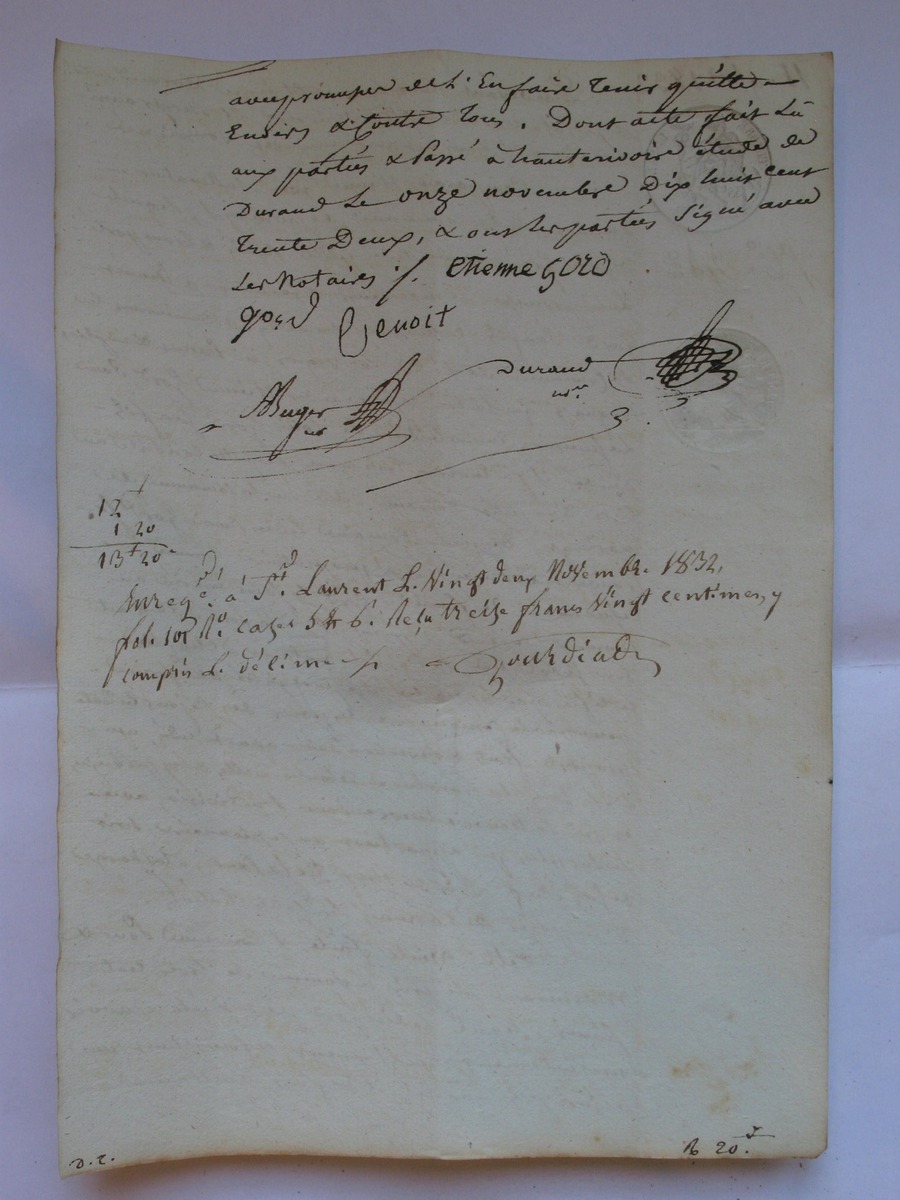 avec promesse de L'En faire Tenir quitte
Envers & Contre Tous. Dont acte fait Lu
aux parties & Passé à hauterivoire étude de
Durand Le onze novembre Dix huit cent
Trente Deux, & ont les parties Signé avec
Les Notaires ./. etienne gord
gord Benoit
Durand
nre
Auger
nre
12 f
1 20
13 f 20
Enregé. à St. Laurent L. Vingt deux Novembre 1832,
fol. 101 Ro. cases 5 & 6. Reçu treize francs Vingt centimes, y
compris L. décime ./. Gourdiat
D. T.
R 20 f